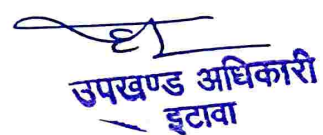 उपखण्ड अधिकारी
इटावा